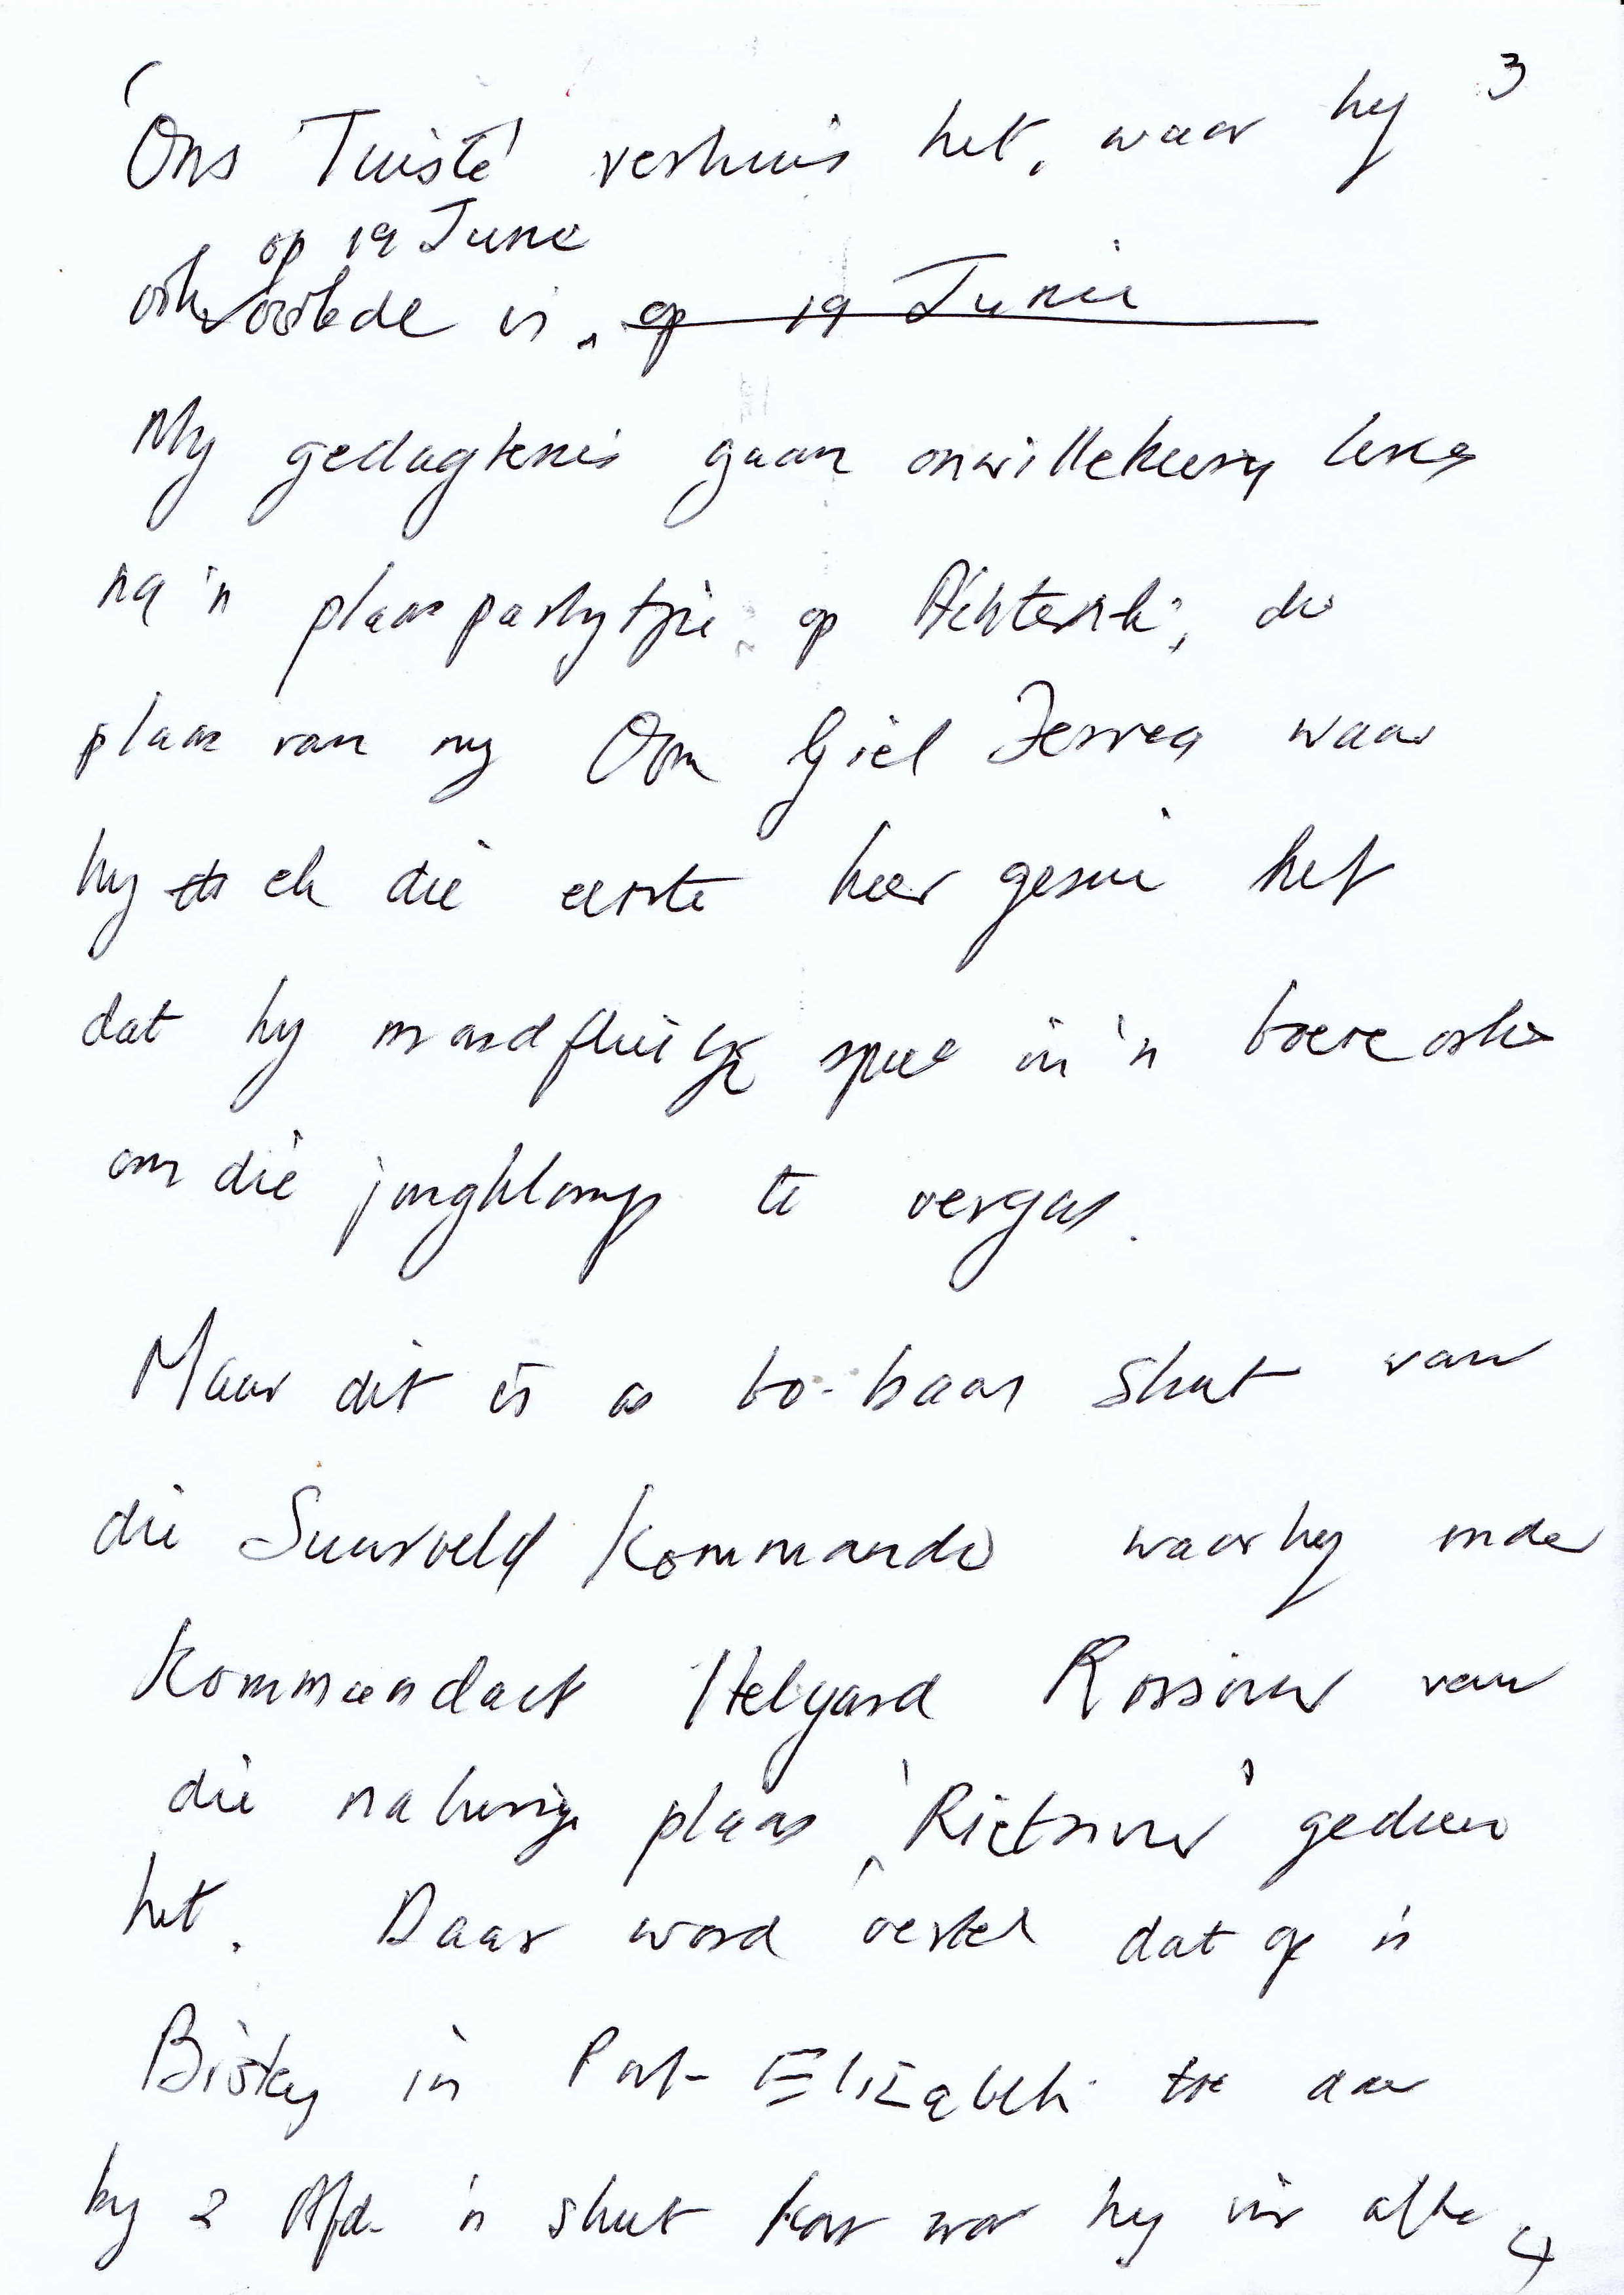 3
'Ons Tuiste' verhuis het, waar hy
op 19 June
ook oorlede is. op 19 Junie
My gedagtenis gaan onwillekeurig terug
na 'n plaaspartytjie op die
plaas van my Oom Giel Ferreira waar
hy ek die eerste keer gesien het
dat hy mondfluitjie speel in 'n boereorkes
om die jongklomp te vergas.
Maar dit is as bo-baas skut van
die Suurveld Kommando waar hy onder
Kommandant Helgard Rossouw van
die naburige plaas 'Rietvlei' gedien
het. Daar word vertel dat op 'n
Bisley in Port Elizabeth toe daar
by 2 Afd. 'n skut kort was hy vir
4